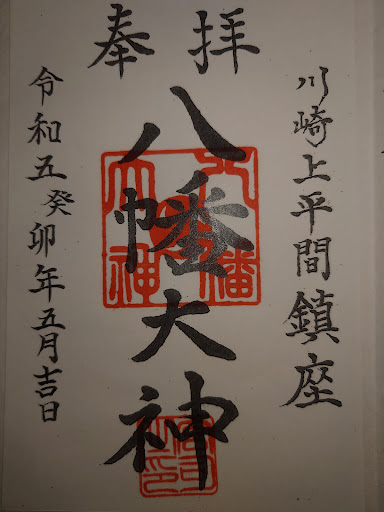 奉拝
川崎上平間鎮座
八幡大神
令和五癸卯年五月吉日
八幡大神